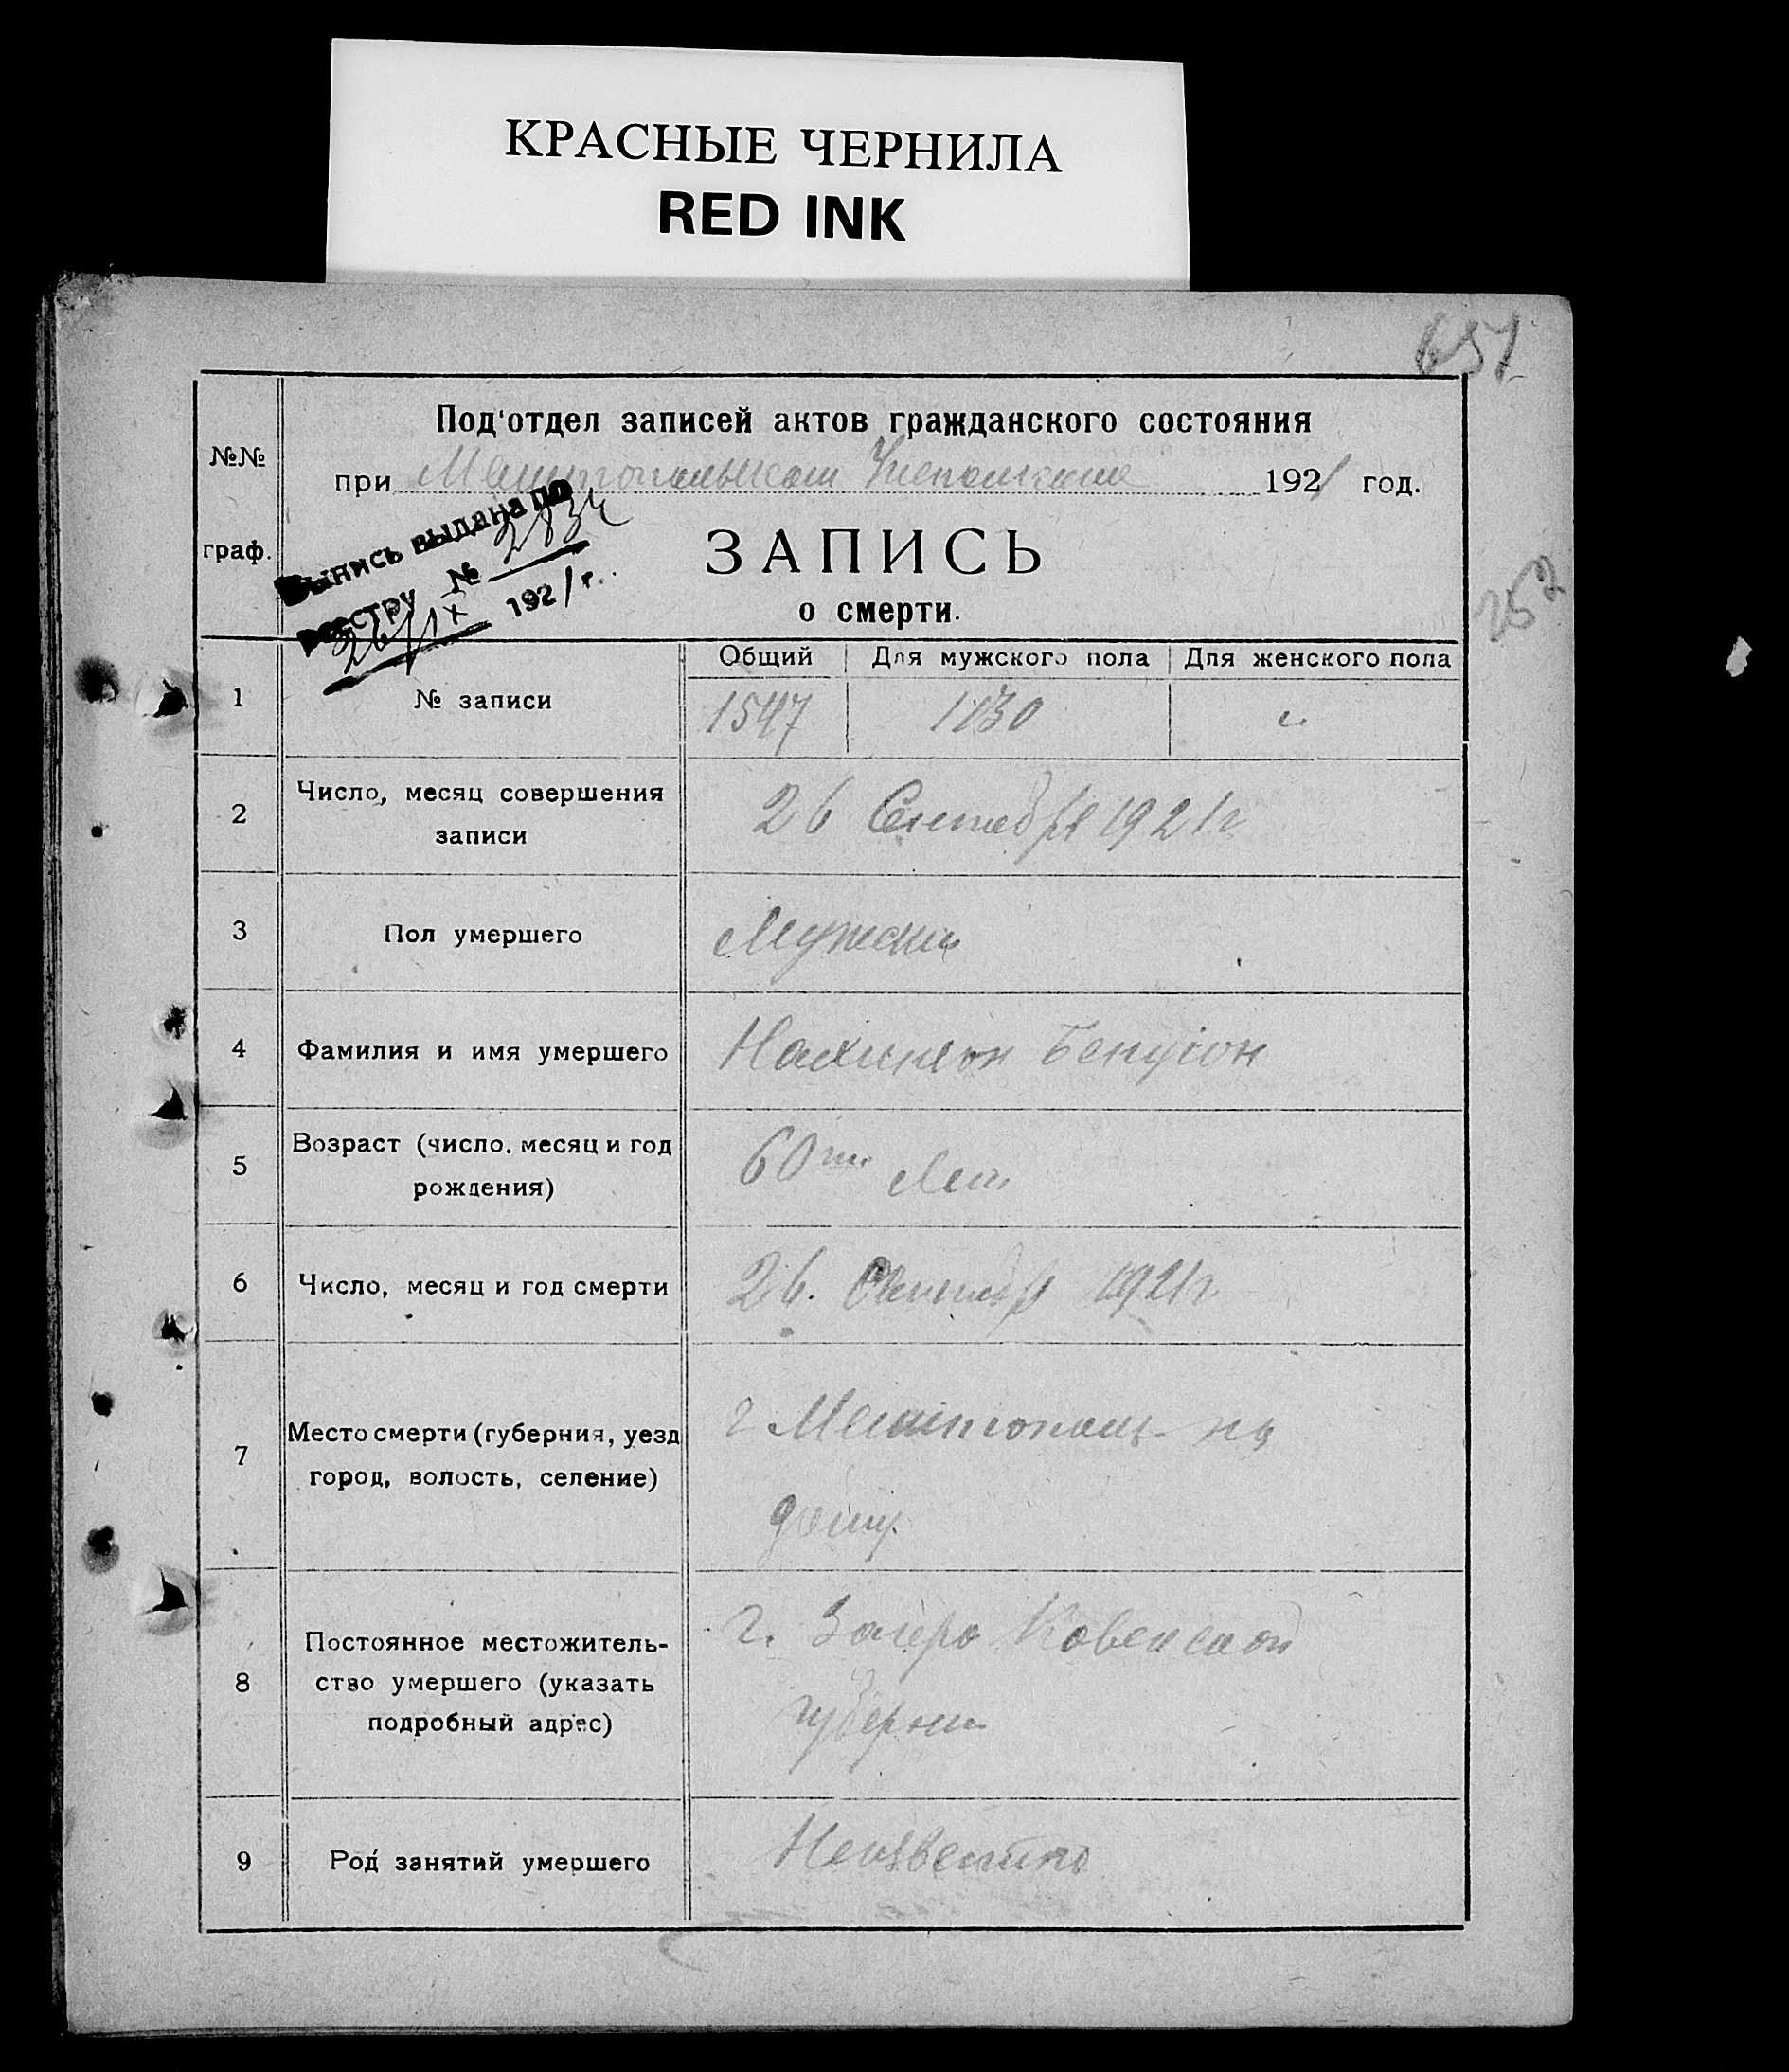 КРАСНЫЕ ЧЕРНИЛА
RED INK
651
Под'отдел записей актов гражданского состояния
№№
граф.
при Мелитопольском 1921 год.
Выпись выдана по
реестру № 2834
26/IX 1921 г.
ЗАПИСЬ
о смерти.
252
Общий Для мужского пола Для женского пола
1 № записи 1547
2 Число, месяц совершения
записи
26 Сентября 1921 г
3 Пол умершего Мужской
4 Фамилия и имя умершего Нахимзон Бенцион
5 Возраст (число, месяц и год
рождения)
60ти Лет
6 Число, месяц и год смерти 26. Сентябр 1921 г.
7 Место смерти (губерния, уезд
город, волость, селение)
г Мелитополь на
дому.
8 Постоянное местожитель-
ство умершего (указать
подробный адрес)
г. Ковенской
губерни
9 Род занятий умершего Неизвестно